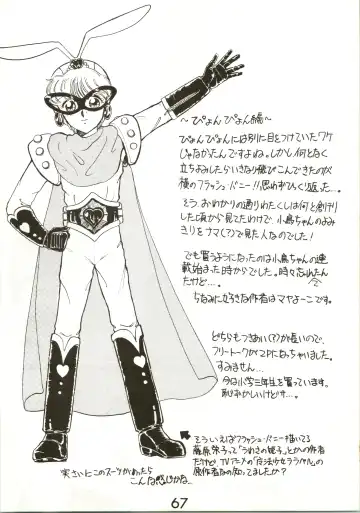 ～ぴょんぴょん編～
ぴょんぴょんには別に目をつけていたワケ
じゃなかったんですよね。しかし何となく
立ちよみしたらいきなり飛びこんできたのが
横のフラッシュ・バニー!!思わずひっくり返った…。
そう、おわかりの通りわたくしは何と創刊
した頃から見てたわけで、小鳥ちゃんのよみ
きりをナマ(?)で見た人なのでした!
でも買うようになったのは小鳥ちゃんの連
載始まった時からでした。時々忘れたん
だけど…。
ちなみに立ちよき作者はマヤよーこです。
どちらもつきあい(?)が長いので、
フリートークが2Pになっちゃいました。
すみません…
今は小学三年生を買っています。
恥ずかしいけどサ…。
そういえばフラッシュ・バニー描いてる
藤原栄子って「うわさの姫子」とかの作者
だけど、TVアニメの「魔法少女ララベル」の
原作者なの知ってましたか?
実さいにこのスーツがあったら
こんな感じかな…
67